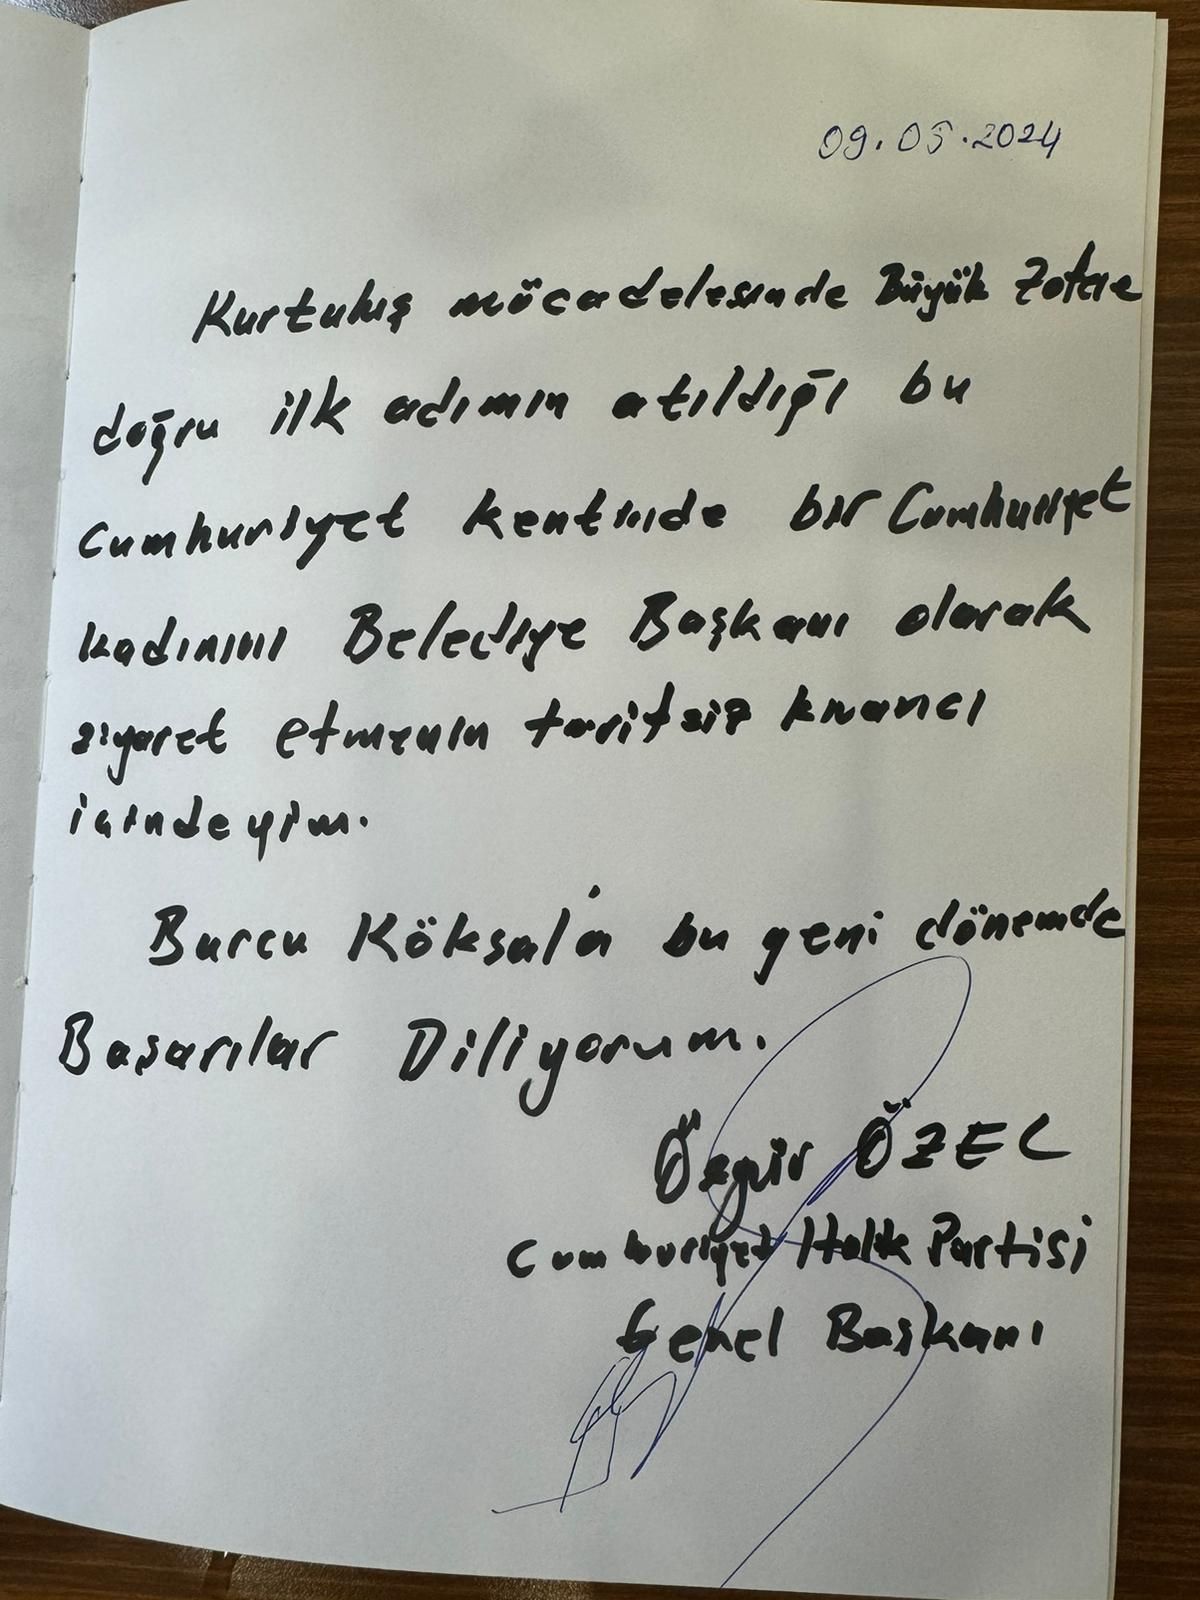 09.05.2024
Kurtuluş mücadelesinde Büyük Zafere
doğru ilk adımın atıldığı bu
Cumhuriyet kentinde bir Cumhuriyet
kadınını Belediye Başkanı olarak
ziyaret etmenin tarifsiz kıvancı
içindeyim.
Burcu Köksal'a bu yeni dönemde
Başarılar Diliyorum.
Özgür ÖZEL
Cumhuriyet Halk Partisi
Genel Başkanı